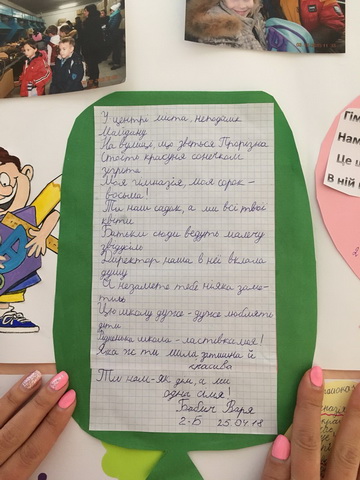 У центрі міста, неподалік
Майдану
На вулиці, що зветься Прорізна
Стоїть красуня сонечком
зігріта
Моя гімназія, моя сорок –
восьма!
Ти наш садок, а ми всі твої
квіти
Батьки сюди ведуть малечу
звідусіль
Директор наша в неї вклала
душу
І незамете тебе ніяка заме-
тіль
Цю школу дуже – дуже люблять
діти
Рідненька школа – ластівка моя!
Яка ж ти мила затишна й
красива
Ти нам – як дім, а ми
одна сім'я!
Бабич Варя
2-Б 25.04.18
Гім
Нам
Це ц
В ній